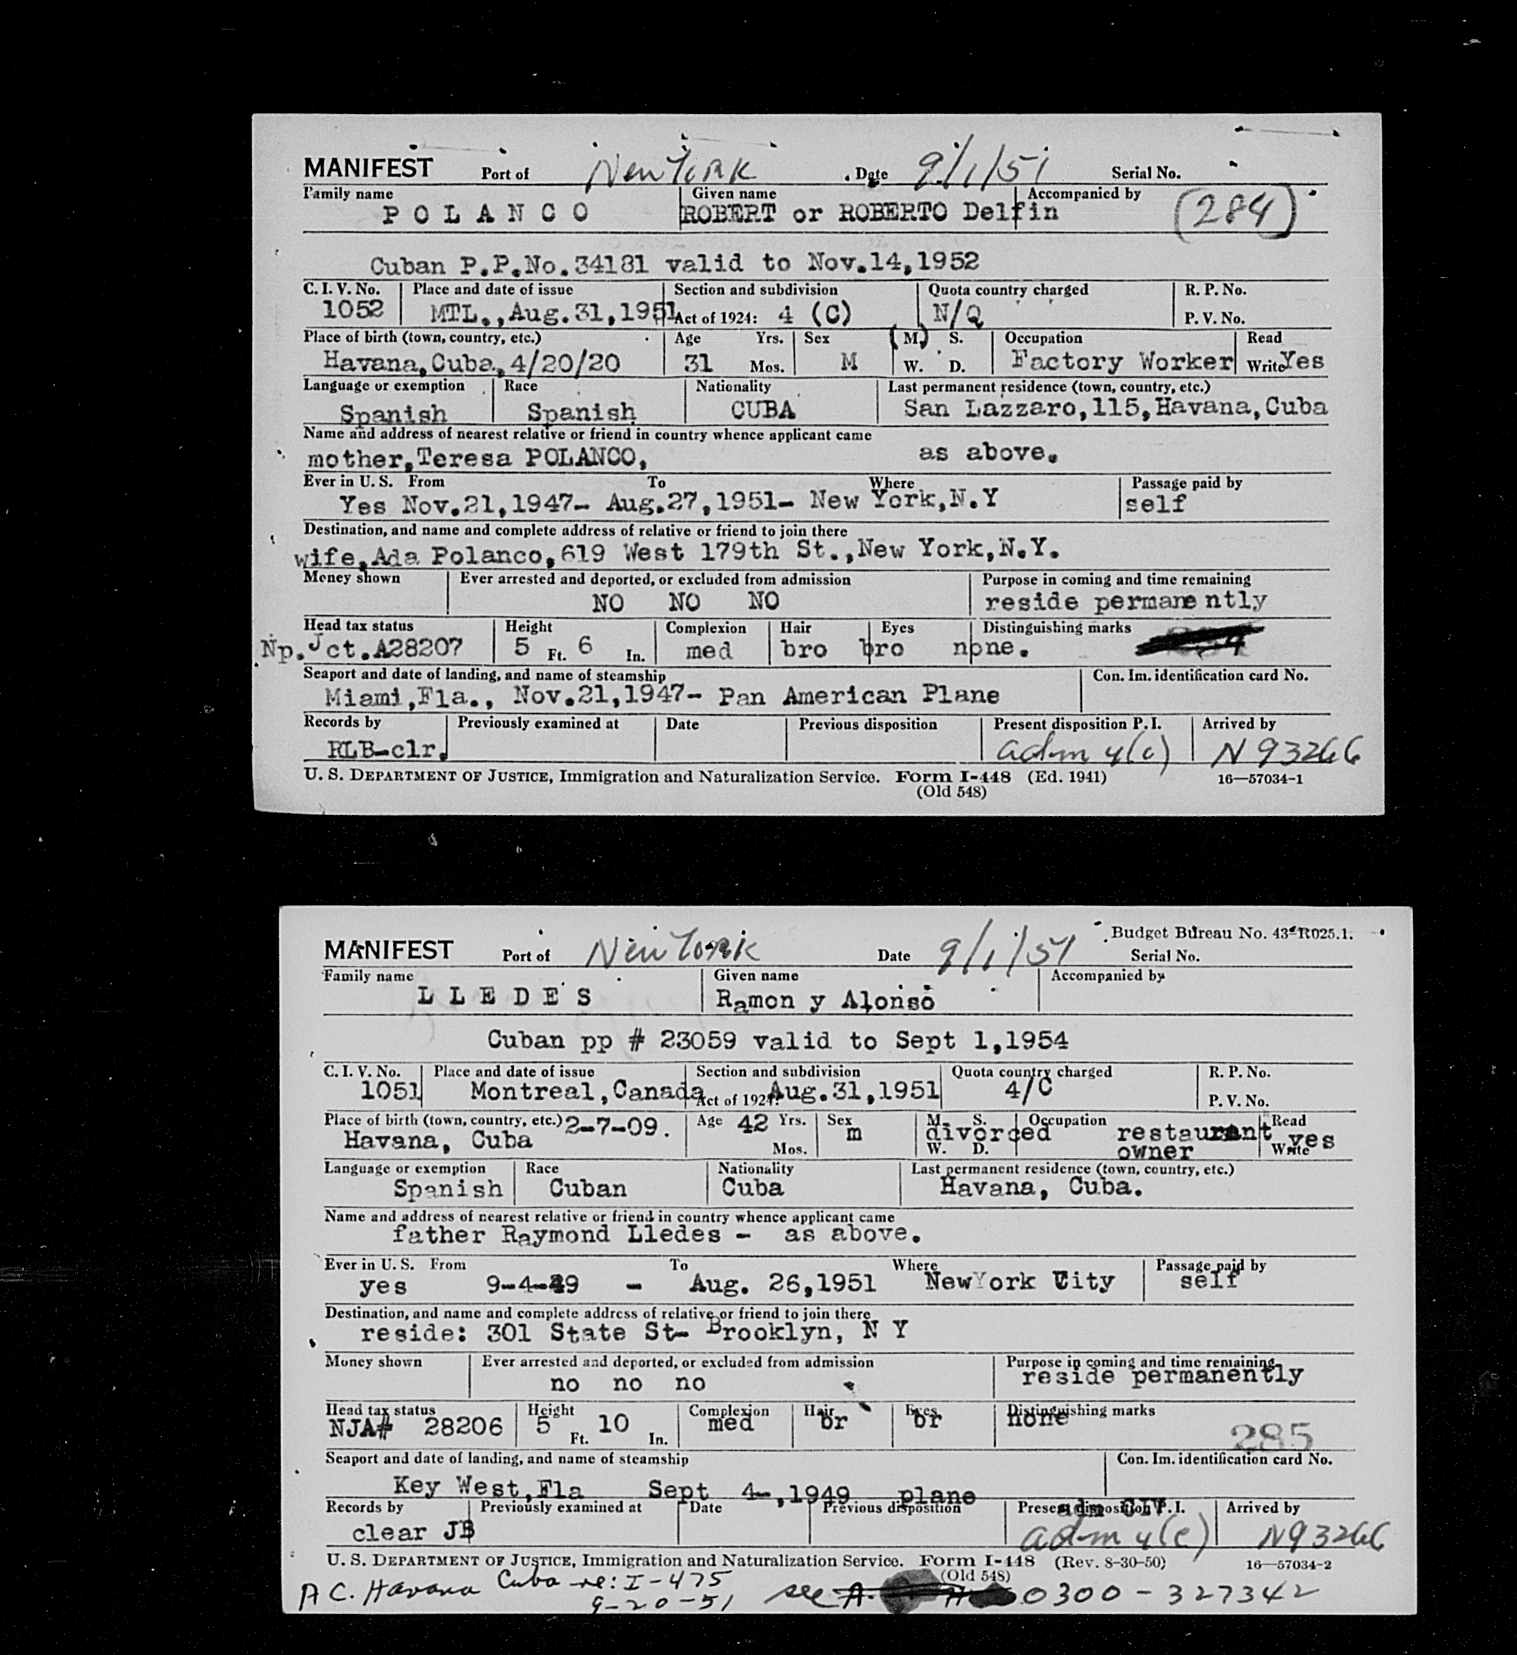 MANIFEST Port of New York . Date 9/1/51 Serial No.
Family name Given name Accompanied by
POLANCO ROBERT or ROBERTO Delfin (284)
Cuban P.P.No.34181 valid to Nov.14,1952
C. I. V. No. Place and date of issue Section and subdivision Quota country charged R. P. No.
1052 MTL.,Aug.31,1951 Act of 1924: 4 (C) N/Q P. V. No.
Place of birth (town, country, etc.) Age Yrs. Sex (M.) S. Occupation Read
Havana,Cuba,4/20/20 31 Mos. M W. D. Factory Worker Write Yes
Language or exemption Race Nationality Last permanent residence (town, country, etc.)
Spanish Spanish CUBA San Lazzaro,115,Havana,Cuba
Name and address of nearest relative or friend in country whence applicant came
mother,Teresa POLANCO, as above.
Ever in U. S. From To Where Passage paid by
Yes Nov.21,1947- Aug.27,1951- New York,N.Y self
Destination, and name and complete address of relative or friend to join there
wife,Ada Polanco,619 West 179th St.,New York,N.Y.
Money shown Ever arrested and deported, or excluded from admission Purpose in coming and time remaining
NO NO NO reside permanently
Head tax status Height Complexion Hair Eyes Distinguishing marks
Np.Jct.A28207 5 Ft. 6 In. med bro bro none.
Seaport and date of landing, and name of steamship Con. Im. identification card No.
Miami,Fla., Nov.21,1947- Pan American Plane
Records by Previously examined at Date Previous disposition Present disposition P. I. Arrived by
RLB-clr. adm 4(c) N93266
U. S. DEPARTMENT OF JUSTICE, Immigration and Naturalization Service. Form I-448 (Ed. 1941) 16—57034-1
(Old 548)
Budget Bureau No. 43-R025.1.
MANIFEST Port of New York Date 9/1/51 Serial No.
Family name Given name Accompanied by
LLEDES Ramon y Alonso
Cuban pp # 23059 valid to Sept 1,1954
C. I. V. No. Place and date of issue Section and subdivision Quota country charged R. P. No.
1051 Montreal,Canada Act of 1924: Aug.31,1951 4/C P. V. No.
Place of birth (town, country, etc.) 2-7-09. Age 42 Yrs. Sex M. S. Occupation Read
Havana, Cuba Mos. m divorced W. D. restaurant owner Write yes
Language or exemption Race Nationality Last permanent residence (town, country, etc.)
Spanish Cuban Cuba Havana, Cuba.
Name and address of nearest relative or friend in country whence applicant came
father Raymond Lledes - as above.
Ever in U. S. From To Where Passage paid by
yes 9-4-49 - Aug. 26,1951 NewYork City self
Destination, and name and complete address of relative or friend to join there
reside: 301 State St- Brooklyn, N Y
Money shown Ever arrested and deported, or excluded from admission Purpose in coming and time remaining
no no no reside permanently
Head tax status Height Complexion Hair Eyes Distinguishing marks
NJA# 28206 5 Ft. 10 In. med br br none 285
Seaport and date of landing, and name of steamship Con. Im. identification card No.
Key West,Fla Sept 4-,1949 plane
Records by Previously examined at Date Previous disposition Present disposition P. I. Arrived by
clear JB adm 4(c) N93266
U. S. DEPARTMENT OF JUSTICE, Immigration and Naturalization Service. Form I-448 (Rev. 8-30-50) 16—57034-2
(Old 548)
A C. Havana Cuba re: I-475 see A. 0300-327342
9-20-51